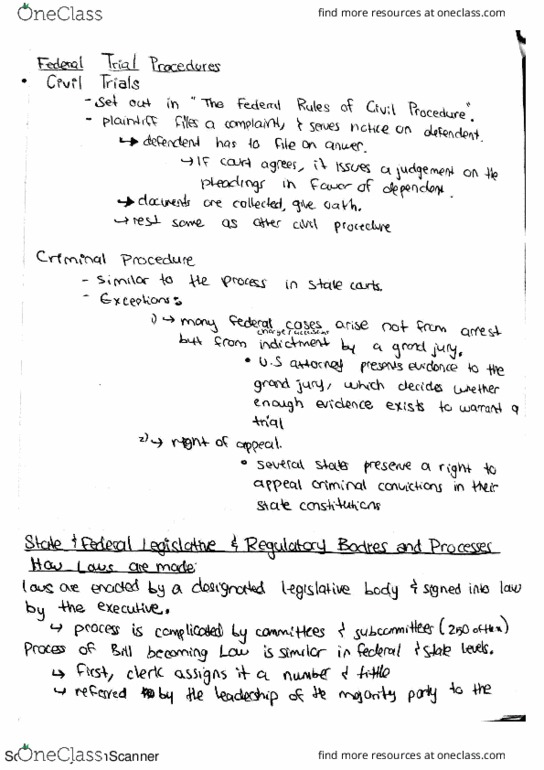 OneClass
find more resources at oneclass.com
Federal Trial Procedures
• Civil Trials
- set out in "The Federal Rules of Civil Procedure".
- plaintiff files a complaint, & serves notice on defendent.
↳ defendent has to file an anwer.
↳ If court agrees, it issues a judgement on the
pleadings in favor of dependent.
↳ documents are collected, give oath.
↳ rest same as other civil procedure
Criminal Procedure
- similar to the process in state carts.
- Exceptions:
1) ↳ many federal cases arise not from arrest
charge/
but from indictment by a grand jury.
• U.S attorney presents evidence to the
grand jury, which decides whether
enough evidence exists to warrant a
trial
2) ↳ right of appeal.
• several states preserve a right to
appeal criminal convictions in their
state constitutions
State & Federal Legislative & Regulatory Bodies and Processes
How Laws are made:
Laws are enacted by a designated legislative body & signed into law
by the executive.
↳ process is complicated by committees & subcommittees (250 of them)
Process of Bill becoming Law is similar in federal & state levels.
↳ First, clerk assigns it a number & tittle
↳ referred by the leadership of the majority party to the
OneClass
Scanner
find more resources at oneclass.com